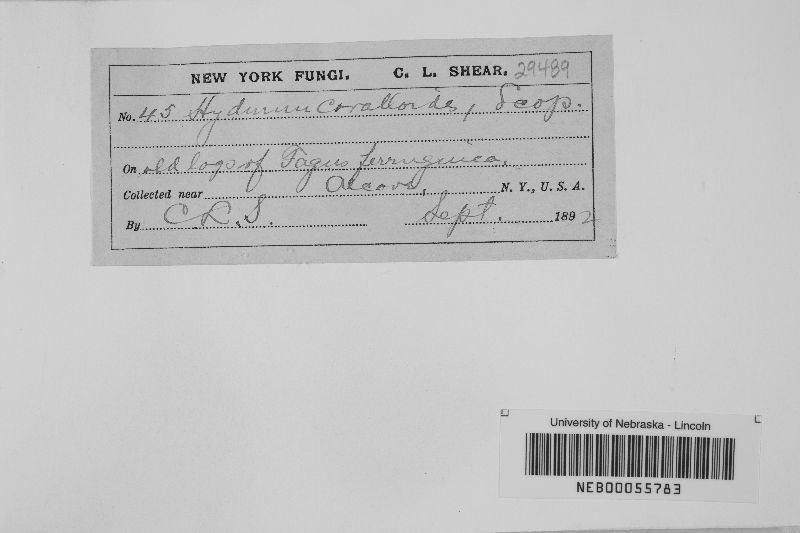 NEW YORK FUNGI. C. L. SHEAR. 29489
No. 45 Hydnum coralloides, Scop.
On old logs of Fagus ferruginea.
Collected near Alcove, N. Y., U. S. A.
By C. L. S. Sept. 1892
University of Nebraska - Lincoln
NEB00055783